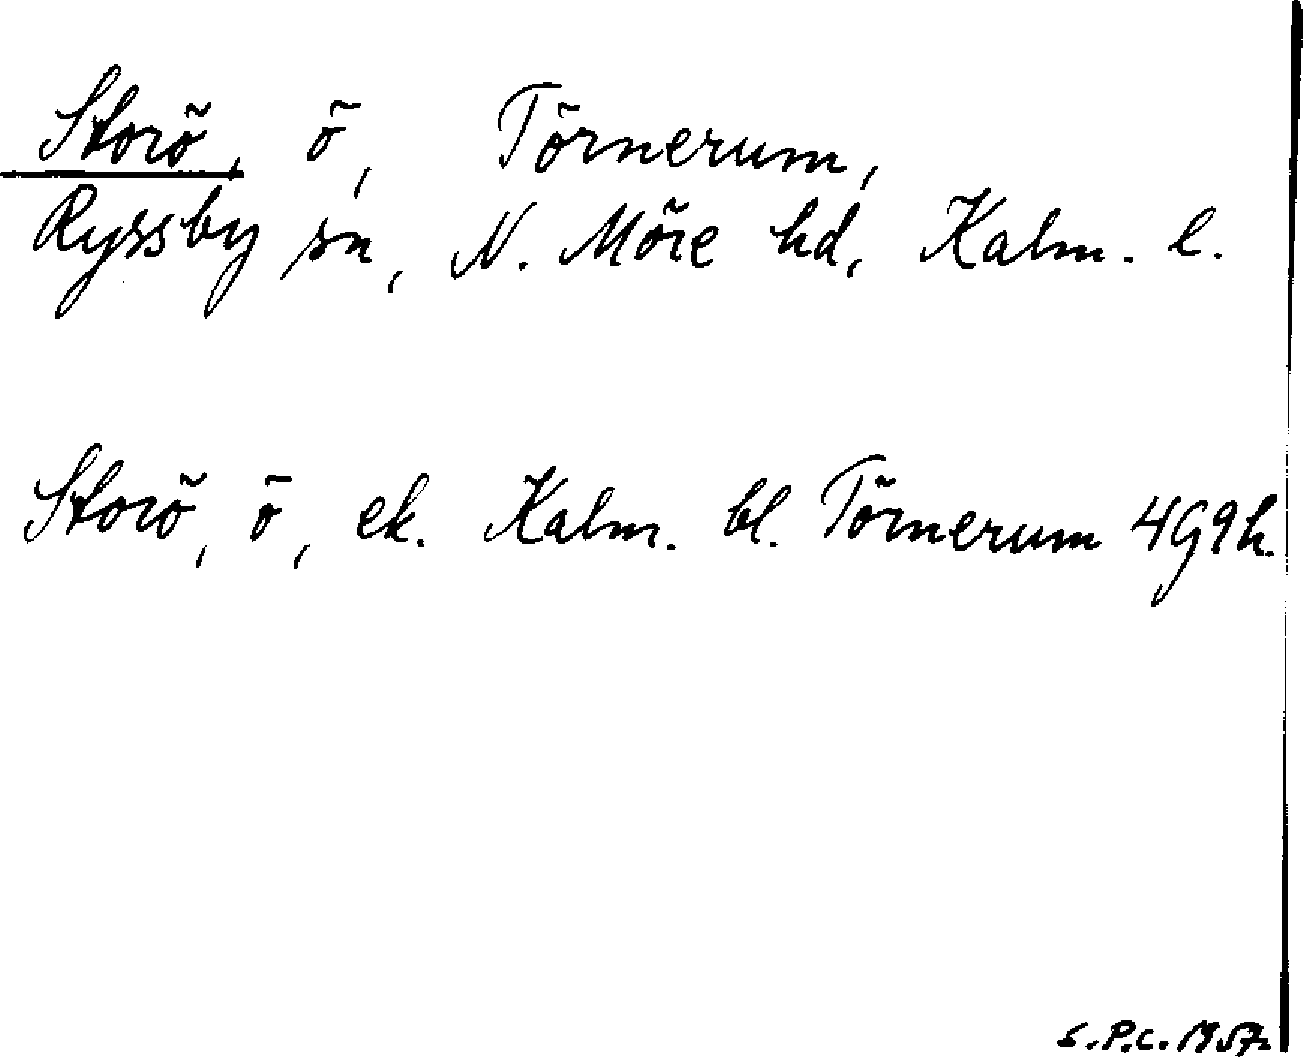 Storö, ö, Törnerum,
Ryssby sn, N. Möre hd, Kalm. l.
Storö, ö, ek. Kalm. bl. Törnerum 4G9h.
S.P.C. 1957.